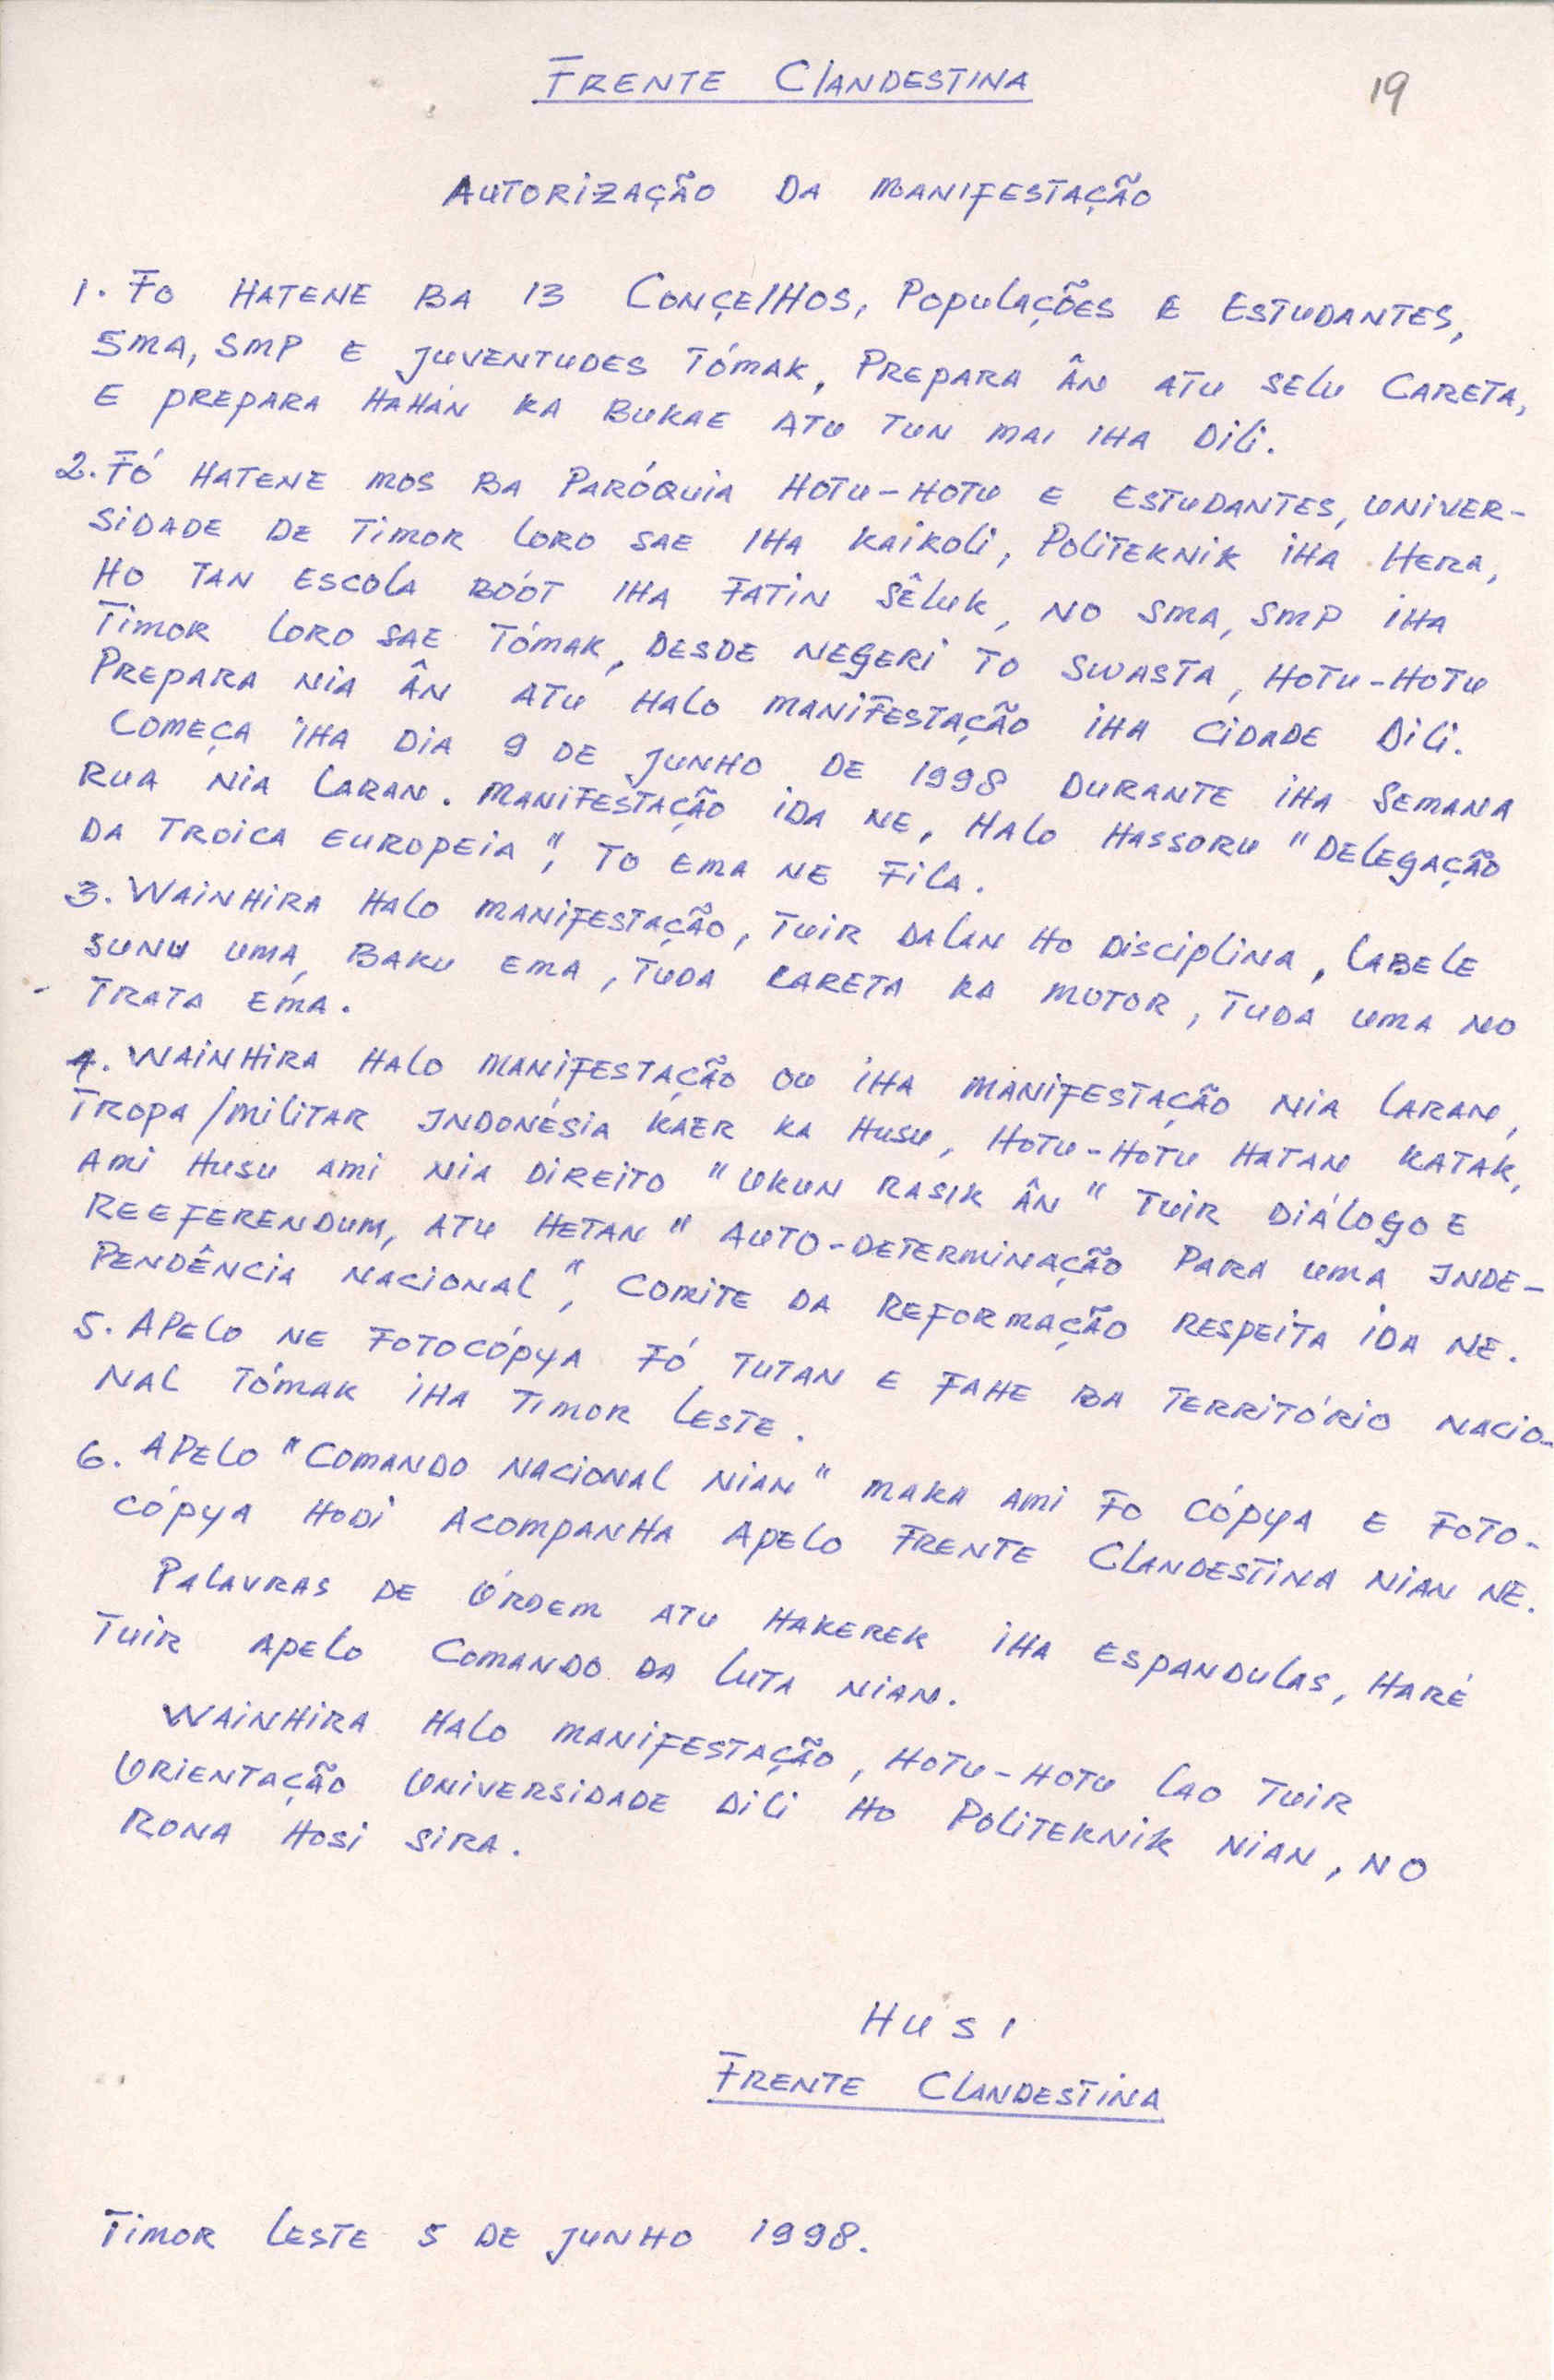 FRENTE CLANDESTINA
19
AUTORIZAÇÃO DA MANIFESTAÇÃO
1. FO HATENE BA 13 CONÇELHOS, POPULAÇÕES E ESTUDANTES,
SMA, SMP E JUVENTUDES TÓMAK, PREPARA ÂN ATU SELU CARETA,
E PREPARA HAHÁN KA BUKAE ATU TUN MAI IHA DILI.
2. FÓ HATENE MOS BA PARÓQUIA HOTU-HOTU E ESTUDANTES, UNIVER-
SIDADE DE TIMOR LORO SAE IHA KAIKOLI, POLITEKNIK IHA HERA,
HO TAN ESCOLA BÓÓT IHA FATIN SÊLUK, NO SMA, SMP IHA
TIMOR LORO SAE TÓMAK, DESDE NEGERI TO SWASTA, HOTU-HOTU
PREPARA NIA ÂN ATU HALO MANIFESTAÇÃO IHA CIDADE DILI.
COMEÇA IHA DIA 9 DE JUNHO DE 1998 DURANTE IHA SEMANA
RUA NIA LARAN. MANIFESTAÇÃO IDA NE, HALO HASSORU "DELEGAÇÃO
DA TROICA EUROPEIA", TO EMA NE FILA.
3. WAINHIRA HALO MANIFESTAÇÃO, TUIR DALAN HO DISCIPLINA, LABELE
SUNU UMA, BAKU EMA, TUDA CARETA KA MOTOR, TUDA UMA NO
TRATA EMA.
4. WAINHIRA HALO MANIFESTAÇÃO OU IHA MANIFESTAÇÃO NIA LARAN,
TROPA/MILITAR INDONÉSIA KAER KA HUSU, HOTU-HOTU HATAN KATAK,
AMI HUSU AMI NIA DIREITO "UKUN RASIK ÂN" TUIR DIÁLOGO E
REEFERENDUM, ATU HETAN "AUTO-DETERMINAÇÃO PARA UMA INDE-
PENDÊNCIA NACIONAL", COMITE DA REFORMAÇÃO RESPEITA IDA NE.
5. APELO NE FOTOCÓPYA FÓ TUTAN E FAHE BA TERRITÓRIO NACIO-
NAL TÓMAK IHA TIMOR LESTE.
6. APELO "COMANDO NACIONAL NIAN" MAKA AMI FO CÓPYA E FOTO-
CÓPYA HODI ACOMPANHA APELO FRENTE CLANDESTINA NIAN NE.
PALAVRAS DE ÓRDEM ATU HAKEREK IHA ESPANDULAS, HARÉ
TUIR APELO COMANDO DA LUTA NIAN.
WAINHIRA HALO MANIFESTAÇÃO, HOTU-HOTU LAO TUIR
ORIENTAÇÃO UNIVERSIDADE DILI HO POLITEKNIK NIAN, NO
RONA HOSI SIRA.
HUSI
FRENTE CLANDESTINA
TIMOR LESTE 5 DE JUNHO 1998.